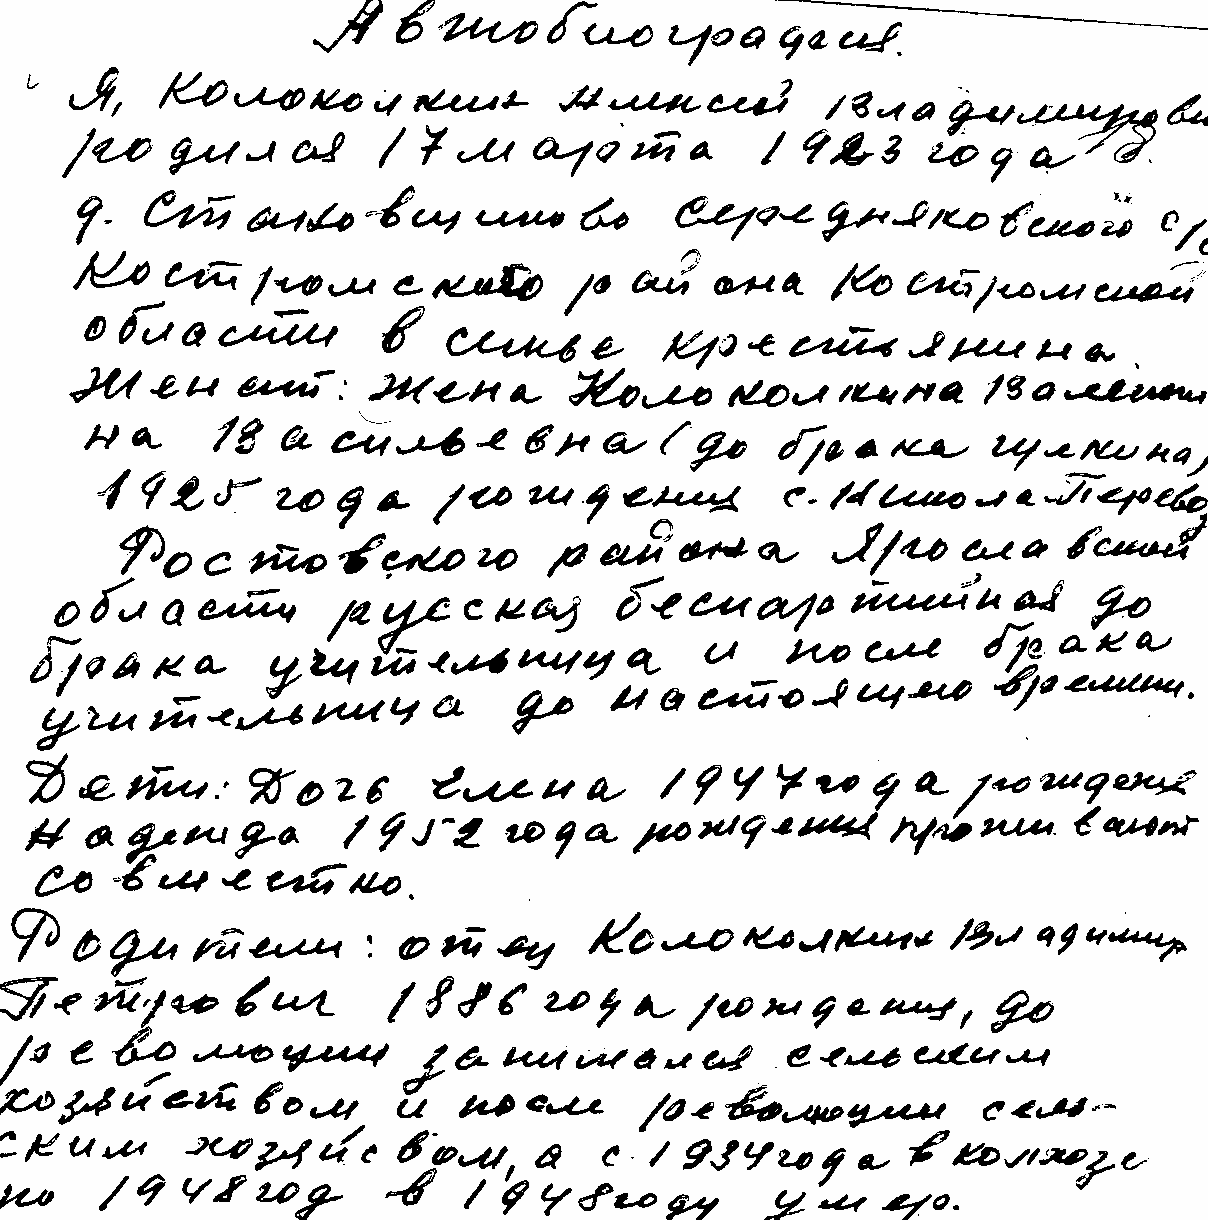 Автобиография.
Я, Колоколкин Алексей Владимирови
родился 17 марта 1923 года в
д. Становщиково Середняковского с/с
Костромского района Костромской
области в семье крестьянина.
Женат: Жена Колоколкина Валенти
на Васильевна (до брака Гулкина)
1925 года рождения с. Никола-Перевоз
Ростовского района Ярославской
области русская беспартийная до
брака учительница и после брака
учительница до настоящего времени.
Дети: Дочь Елена 1947 года рождения
Надежда 1952 года рождения проживают
совместно.
Родители: отец Колоколкин Владимир
Петрович 1886 года рождения, до
революции занимался сельским
хозяйством и после революции сель-
ским хозяйсвом, а с 1934 года в колхозе
по 1948 год в 1948 году умер.